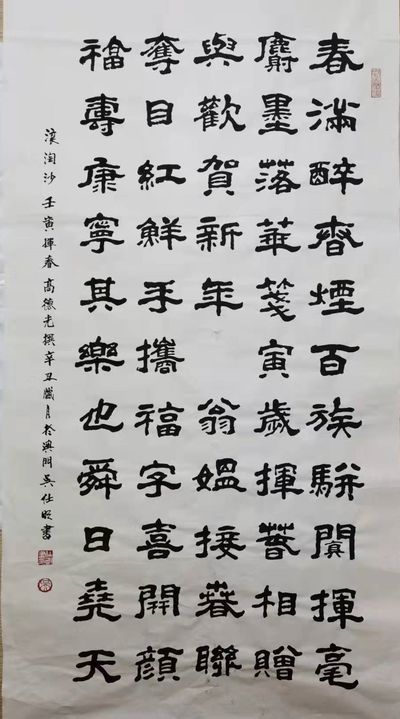 春滿醉香煙百族駢闐揮毫
麝墨落華箋寅歲揮萅相贈
與歡賀新年 翁媼接萅聯
奪目紅鮮手攜福字喜開顏
福壽康寧其樂也舜日堯天
浪淘沙 壬寅揮春 高德光撰 辛丑臘月於澳門 吳仕明書